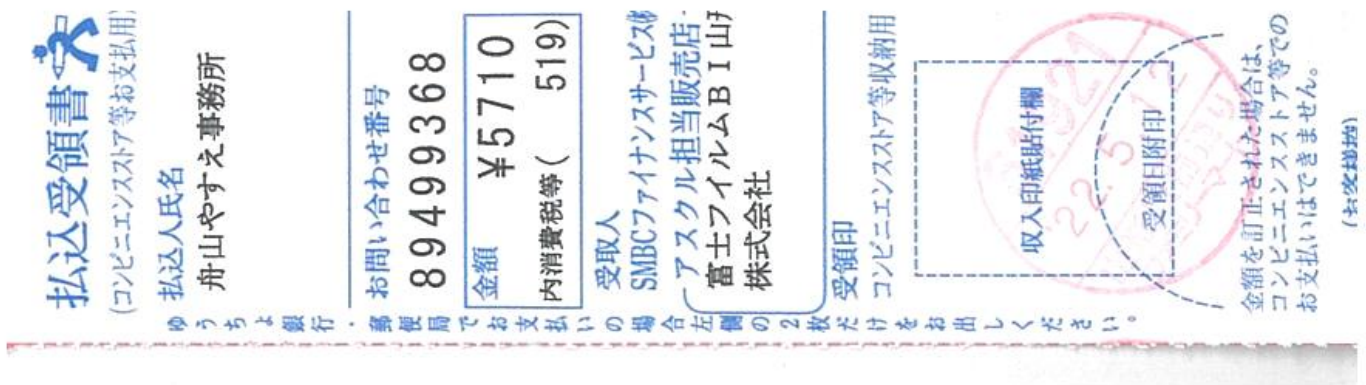 払込受領書
(コンビニエンスストア等お支払用)
払込人氏名
舟山やすえ事務所
お問い合わせ番号
8949499368
金額 ¥5710
内消費税等( 519)
受取人
SMBCファイナンスサービス㈱
アスクル担当販売店
富士フイルムBI山形
株式会社
受領印
コンビニエンスストア等収納用
収入印紙貼付欄
22. 5
受領日附印
金額を訂正された場合は、
コンビニエンスストア等での
お支払いはできません。
(お客様控)
ゆうちょ銀行・郵便局でお支払いの場合左側の2枚だけをお出しください。